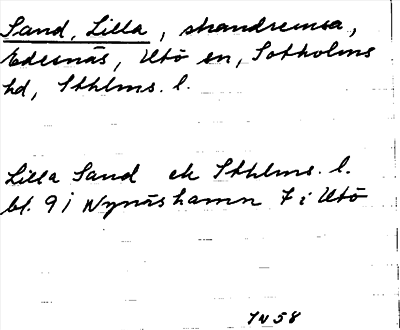 Sand, Lilla, strandremsa,
Edesnäs, Utö sn, Sotholms
hd, Sthlms. l.
Lilla Sand ek Sthlms. l.
bl. 9 i Nynäshamn 7 i Utö
IN 58